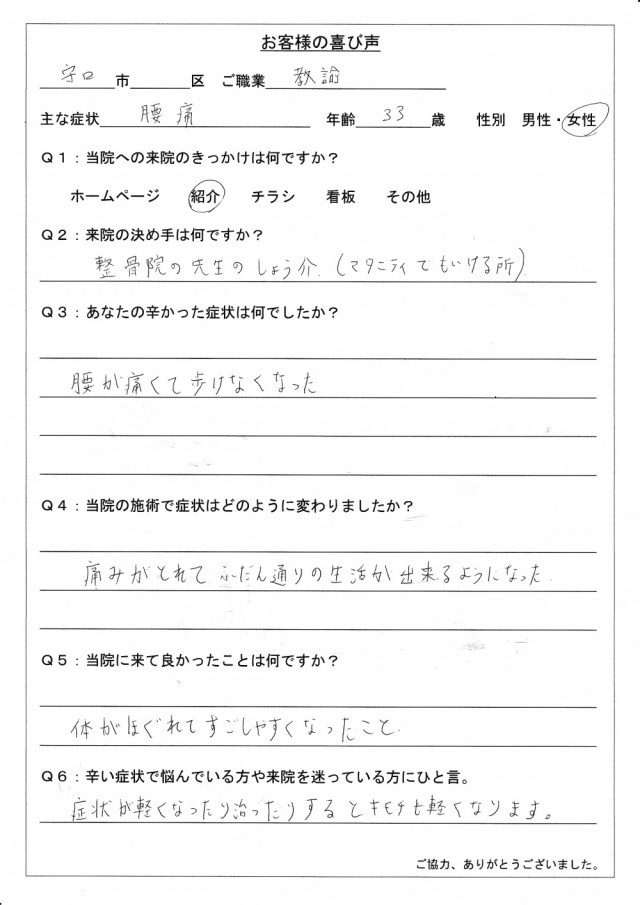 お客様の喜び声
守口 市 区 ご職業 教諭
主な症状 腰痛 年齢 33 歳 性別 男性・女性
Q1：当院への来院のきっかけは何ですか？
ホームページ 紹介 チラシ 看板 その他
Q2：来院の決め手は何ですか？
整骨院の先生のしょう介.（マタニティでもいける所）
Q3：あなたの辛かった症状は何でしたか？
腰が痛くて歩けなくなった
Q4：当院の施術で症状はどのように変わりましたか？
痛みがとれてふだん通りの生活が出来るようになった.
Q5：当院に来て良かったことは何ですか？
体がほぐれてすごしやすくなったこと.
Q6：辛い症状で悩んでいる方や来院を迷っている方にひと言。
症状が軽くなったり治ったりするとキモチも軽くなります。
ご協力、ありがとうございました。